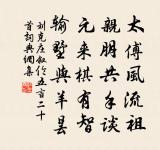 太傅風流祖
親朋共手談
元來棋有智
輸墅與羊曇
刘克庄叙伦五言二十
首詞典網集